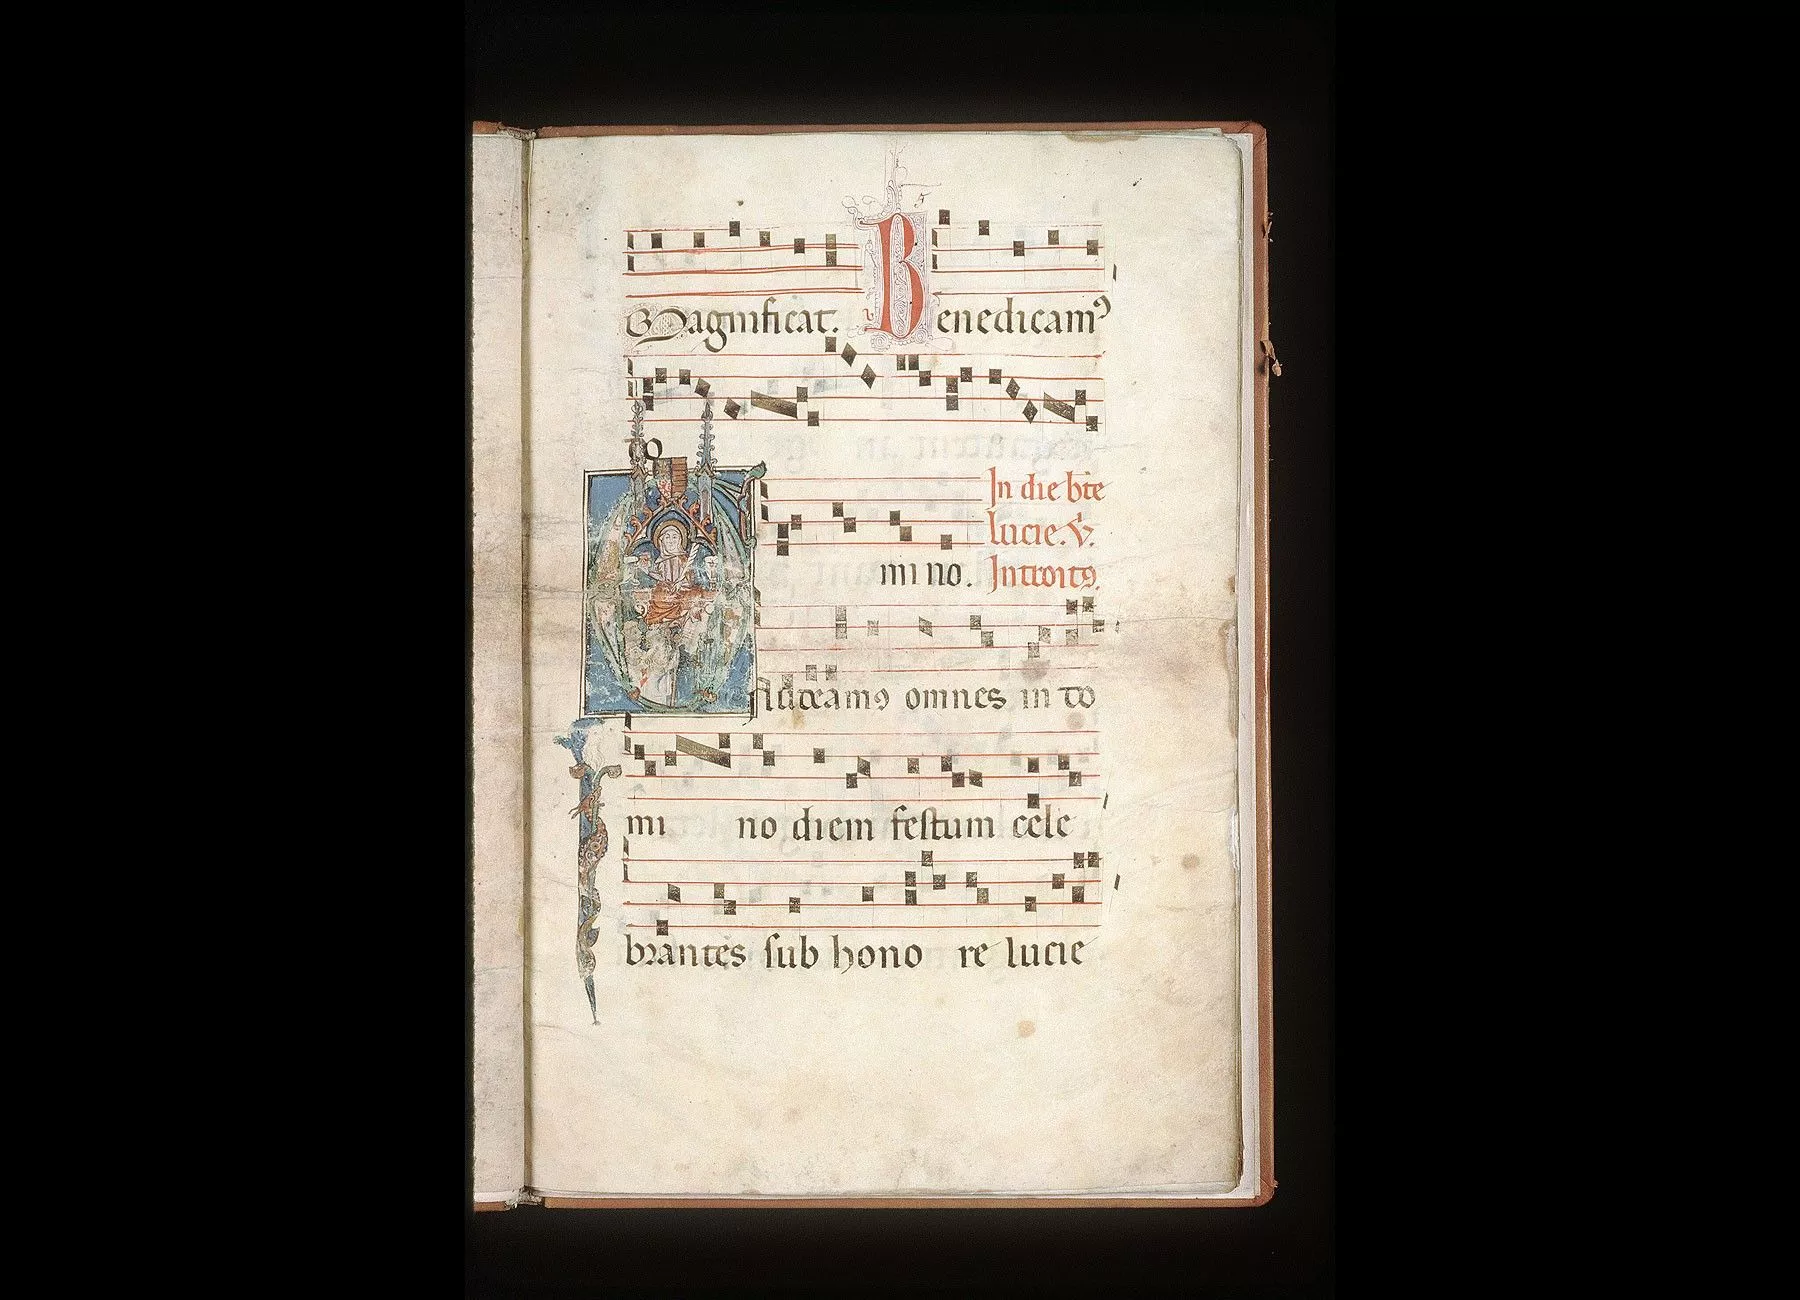 Magnificat. Benedicamꝰ
do
In die bte
lucie. v.
mi no. Introitꝰ.
Audeamꝰ omnes in do
mi no diem festum cele
brantes sub hono re lucie